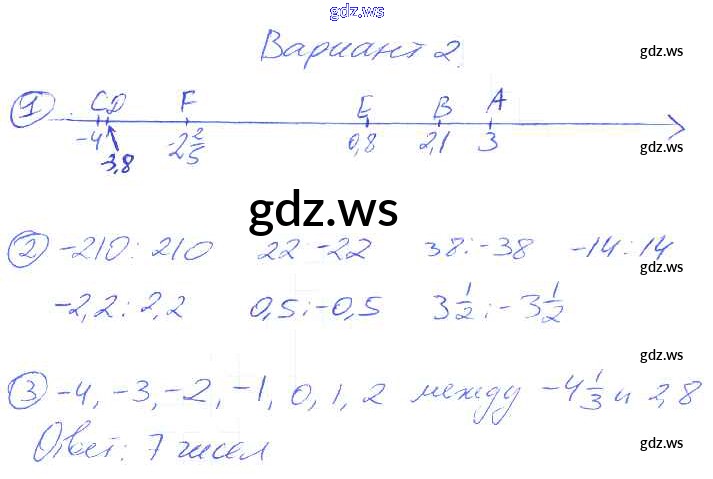 gdz.ws
Вариант 2. gdz.ws
1 C D F E B A
-4 -3,8 -2 2/5 0,8 2,1 3 gdz.ws
gdz.ws
2 -210; 210 22 -22 38; -38 -14; 14
gdz.ws
-2,2; 2,2 0,5; -0,5 3 1/2; -3 1/2
gdz.ws
3 -4, -3, -2, -1, 0, 1, 2 между -4 1/3 и 2,8
Ответ: 7 чисел gdz.ws